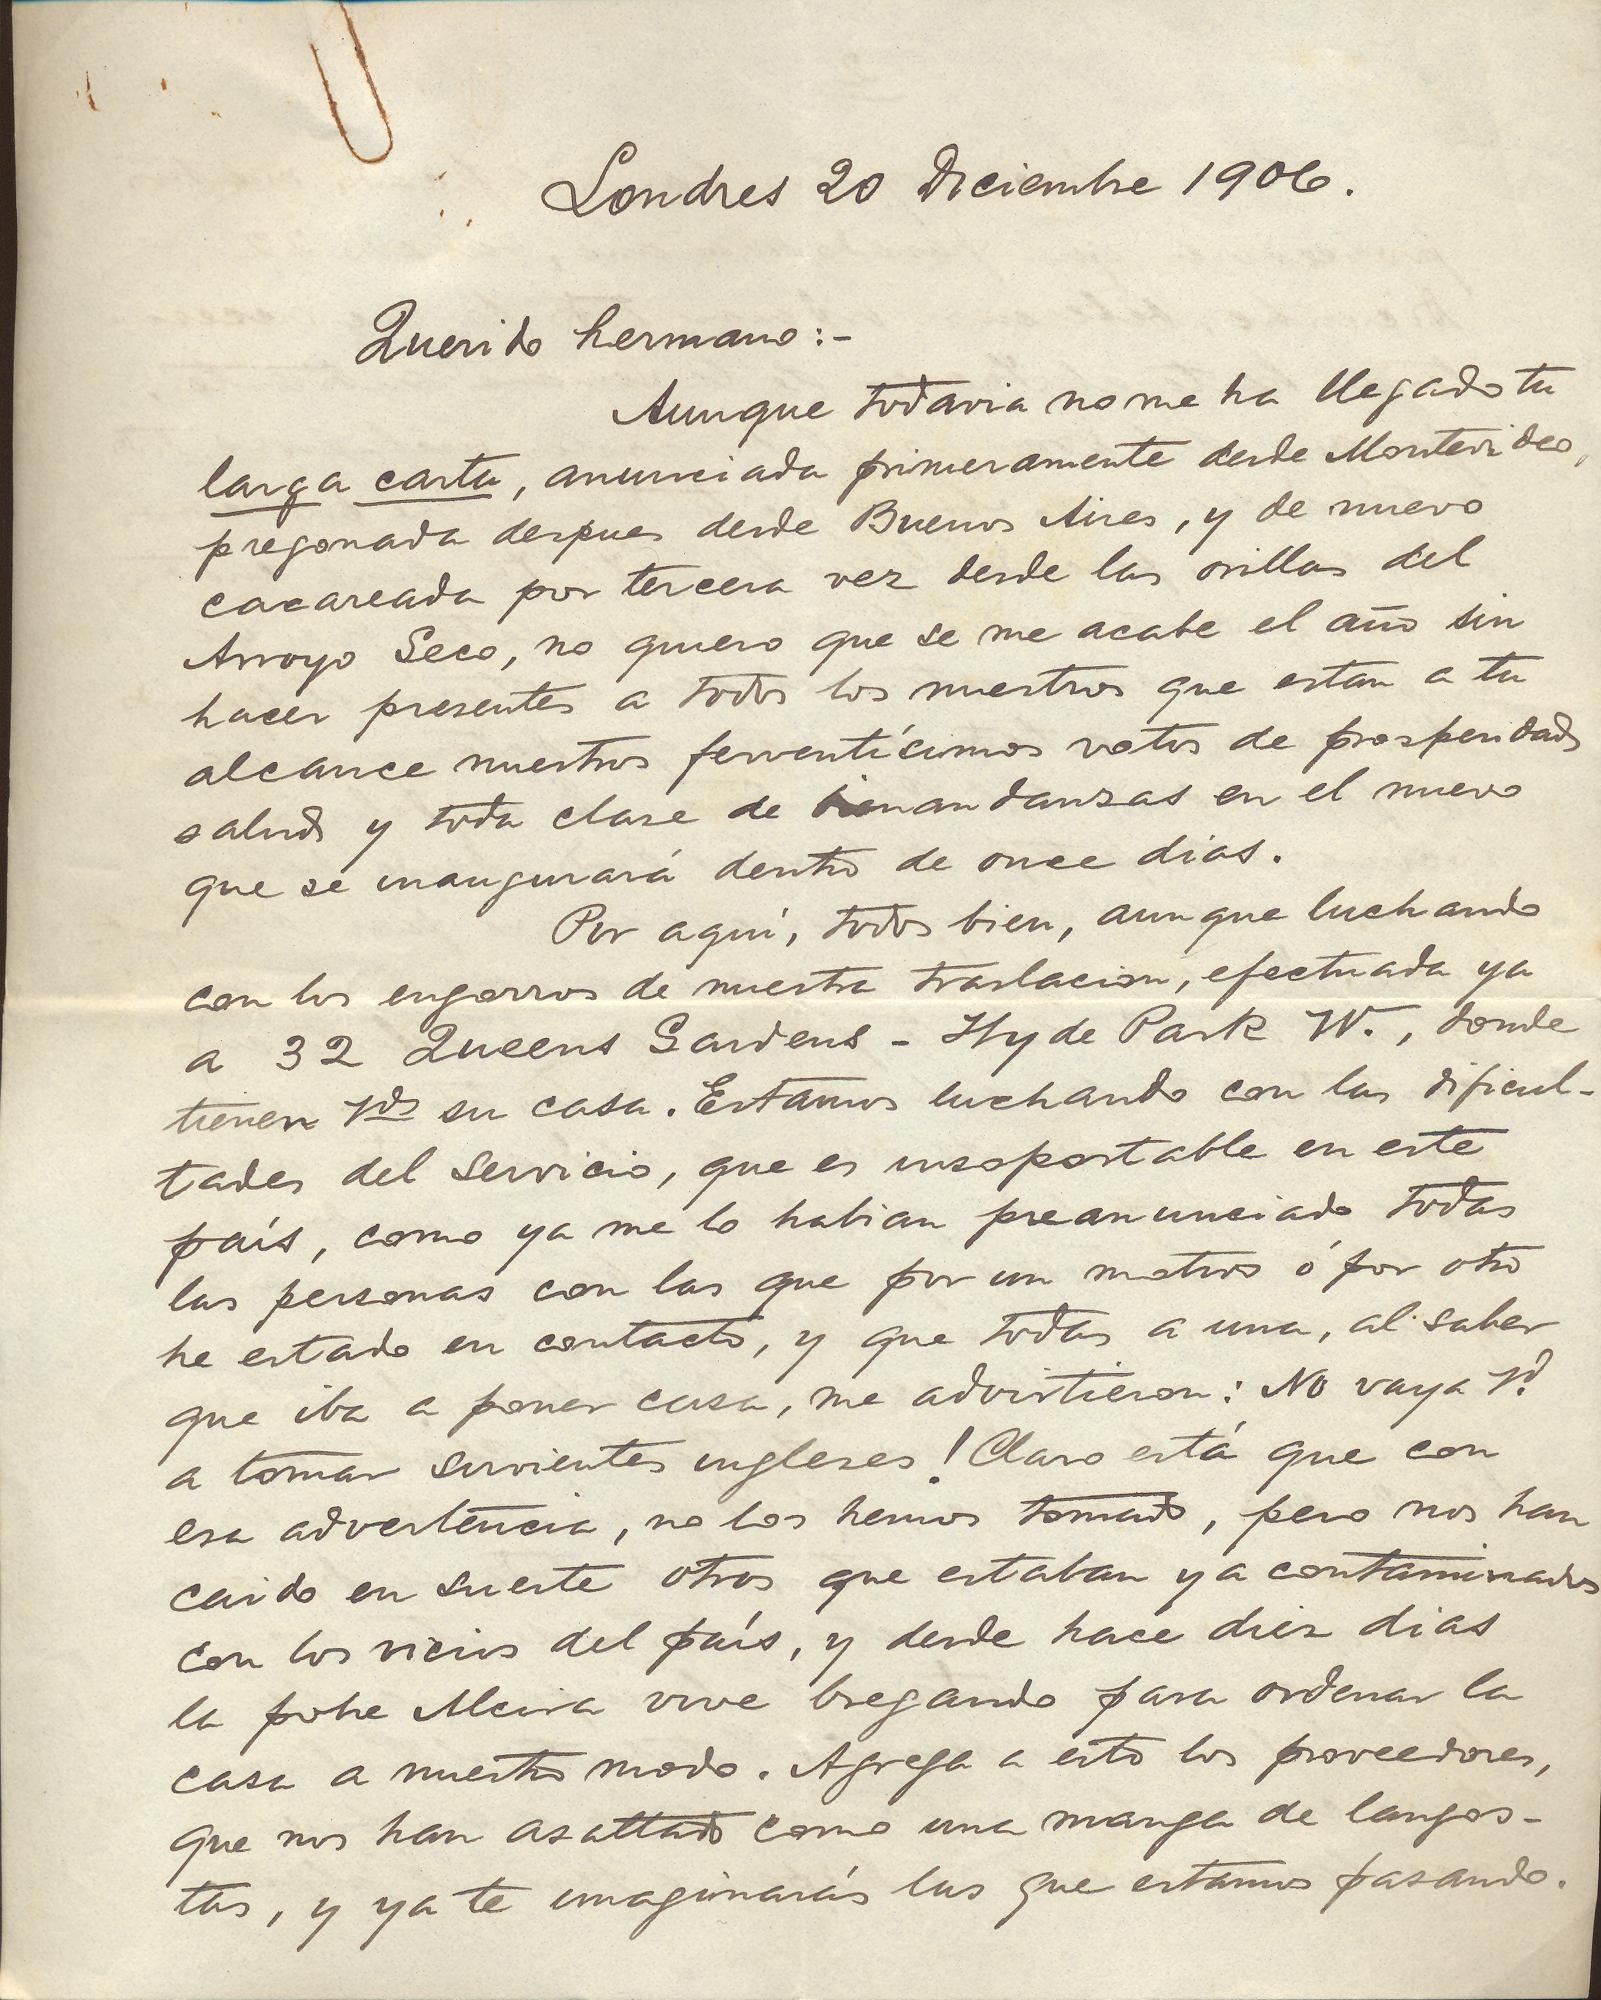 Londres 20 Diciembre 1906.
Querido hermano:-
Aunque todavia no me ha llegado tu
larga carta, anunciada primeramente desde Montevideo,
pregonada despues desde Buenos Aires, y de nuevo
cacareada por tercera vez desde las orillas del
Arroyo Seco, no quiero que se me acabe el año sin
hacer presentes a todos los nuestros que estan a tu
alcance nuestros ferventícimos votos de prosperidad
salud y toda clase de bienandanzas en el nuevo
que se inaugurará dentro de once dias.
Por aquí, todos bien, aunque luchando
con los engorros de nuestra traslacion, efectuada ya
a 32 Queens Gardens - Hyde Park W., donde
tienen Vds su casa. Estamos luchando con las dificul-
tades del servicio, que es insoportable en este
país, como ya me lo habian preanunciado todas
las personas con las que por un motivo ó por otro
he estado en contacto, y que todas a una, al saber
que iba a poner casa, me advirtieron: No vaya Vd
a tomar sirvientes ingleses! Claro está que con
esa advertencia, no los hemos tomado, pero nos han
caido en suerte otros que estaban ya contaminados
con los vicios del país, y desde hace diez dias
la pobre Alcira vive bregando para ordenar la
casa a nuestro modo. Agrega a esto los proveedores,
que nos han asaltado como una manga de langos-
tas, y ya te imaginarás las que estamos pasando.